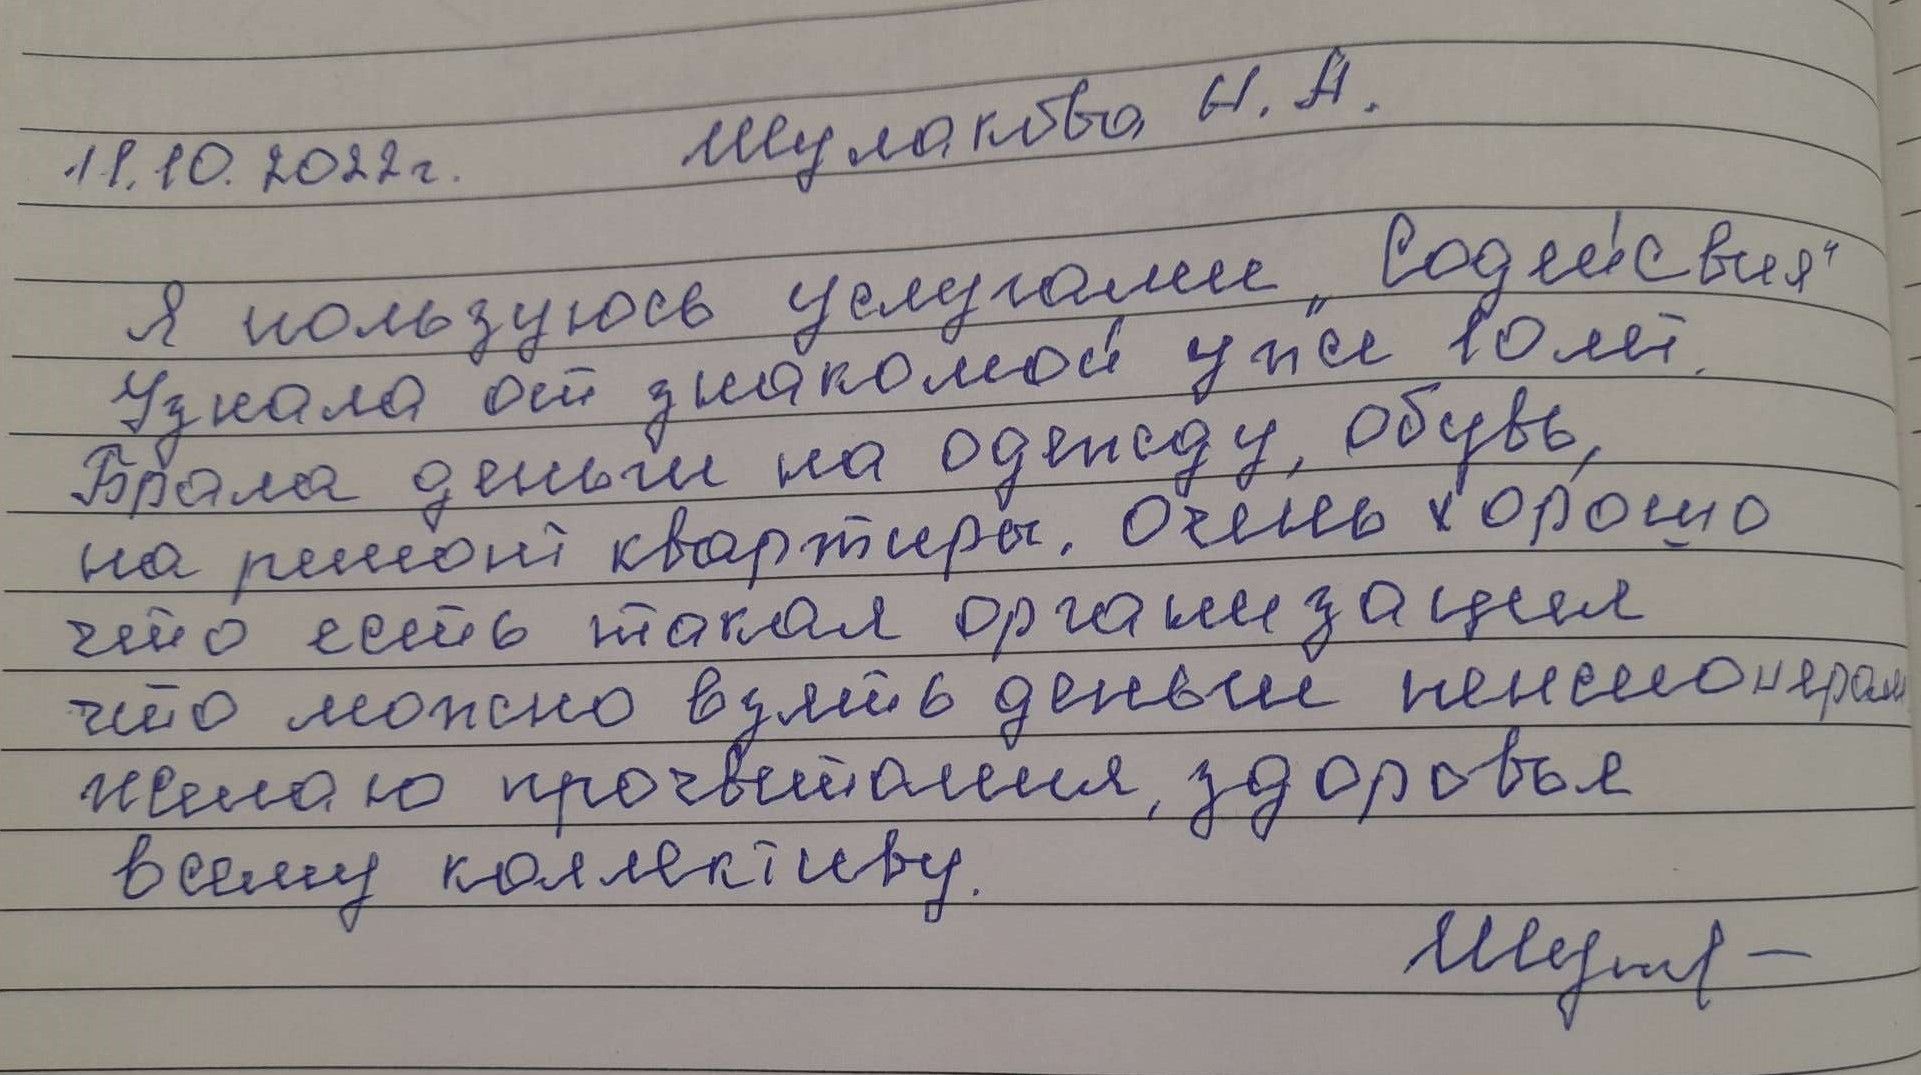 11.10.2022г. Шулакова Н. А.
Я пользуюсь услугами „Содейсвия"
Узнала от знакомой уже 10 лет.
Брала деньги на одежду, обувь,
на ремонт квартиры. Очень хорошо
что есть такая организация
что можно взять деньги пенсионерам
желаю прочвитания, здоровья
всему коллективу.